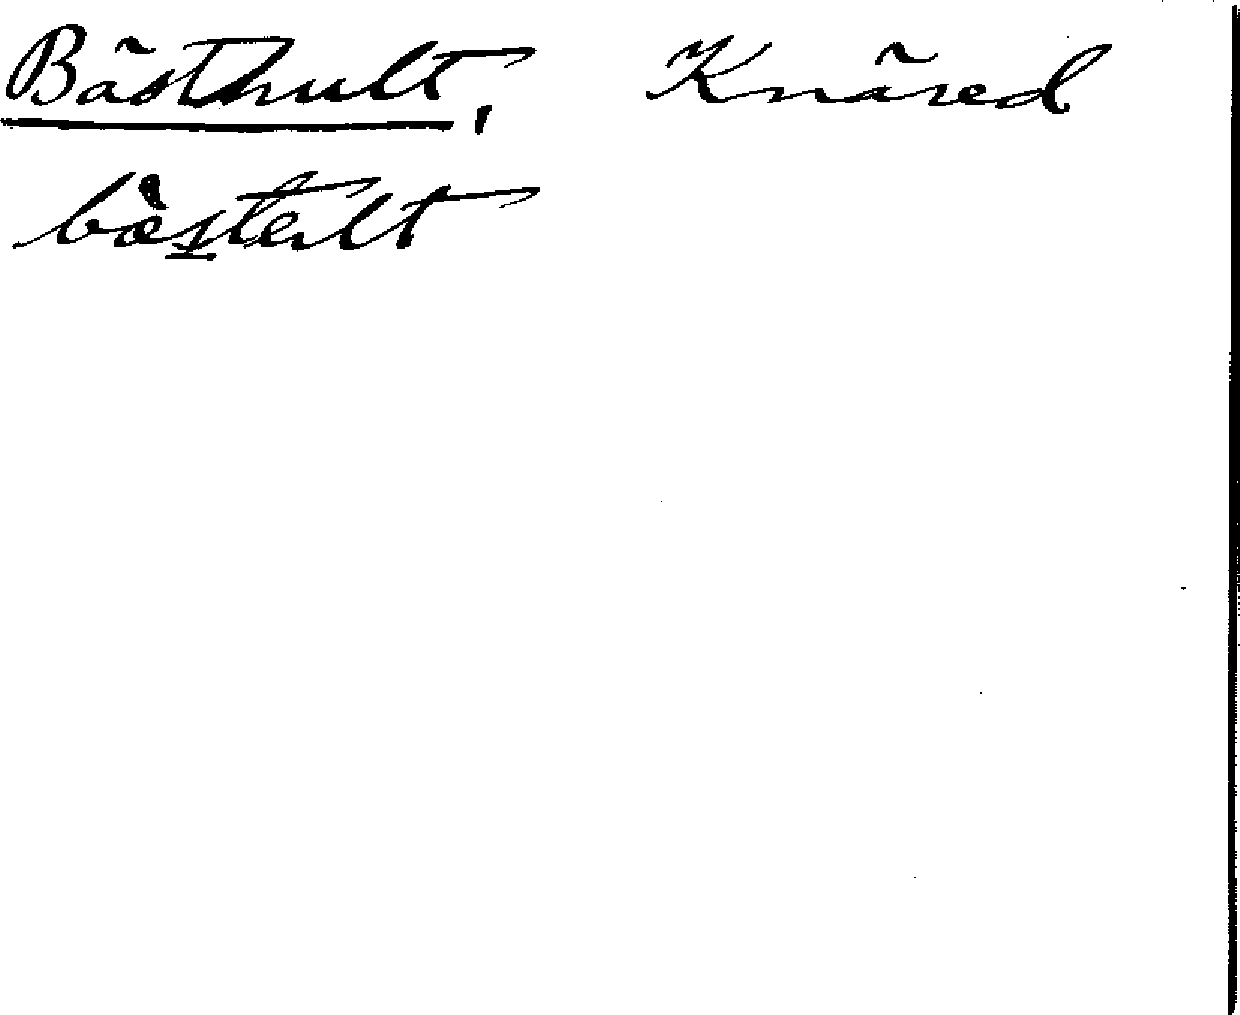 Bästhult, Knäred
bästult